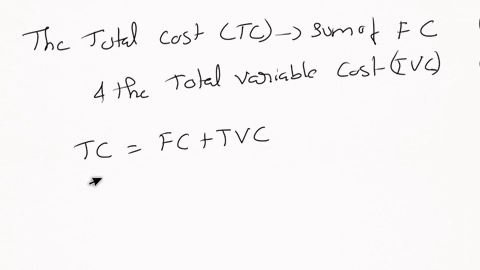 The Total cost (TC) → sum of FC
& the Total variable cost (TVC)
TC = FC + TVC